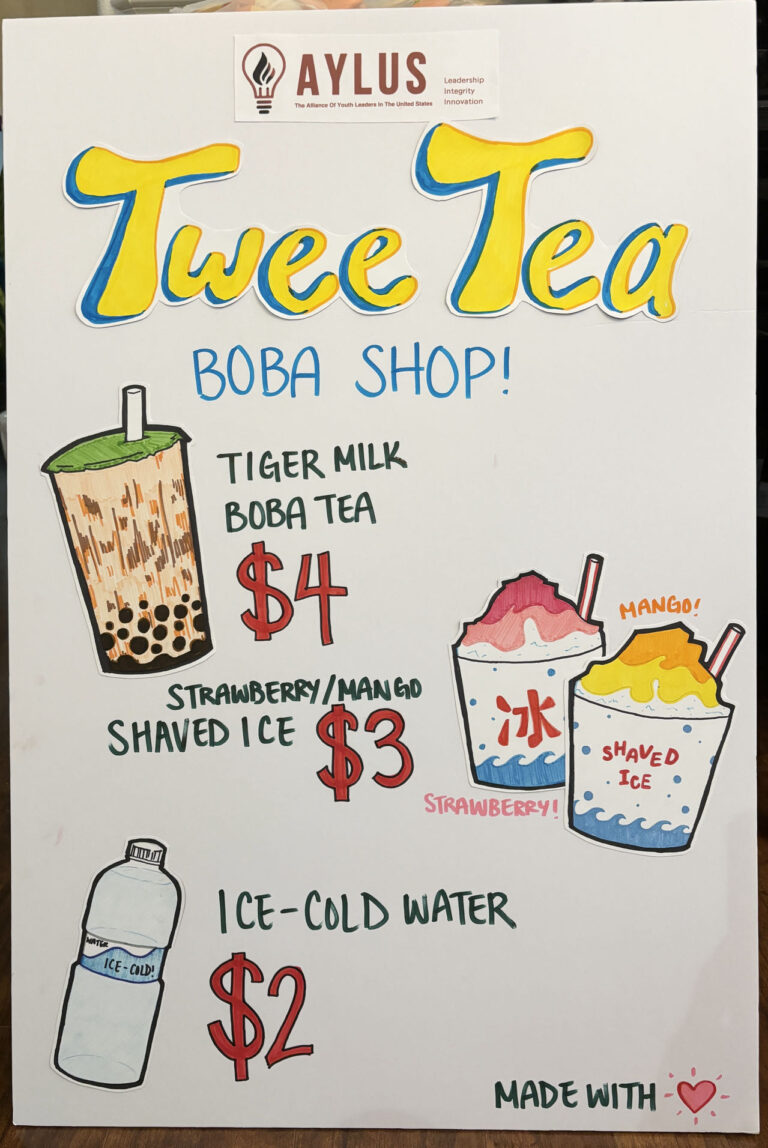 AYLUS
The Alliance Of Youth Leaders In The United States
Leadership
Integrity
Innovation
Twee Tea
BOBA SHOP!
TIGER MILK
BOBA TEA
$4
STRAWBERRY/MANGO
SHAVED ICE $3
MANGO!
冰
SHAVED
ICE
STRAWBERRY!
ICE-COLD WATER
$2
WATER
ICE-COLD!
MADE WITH